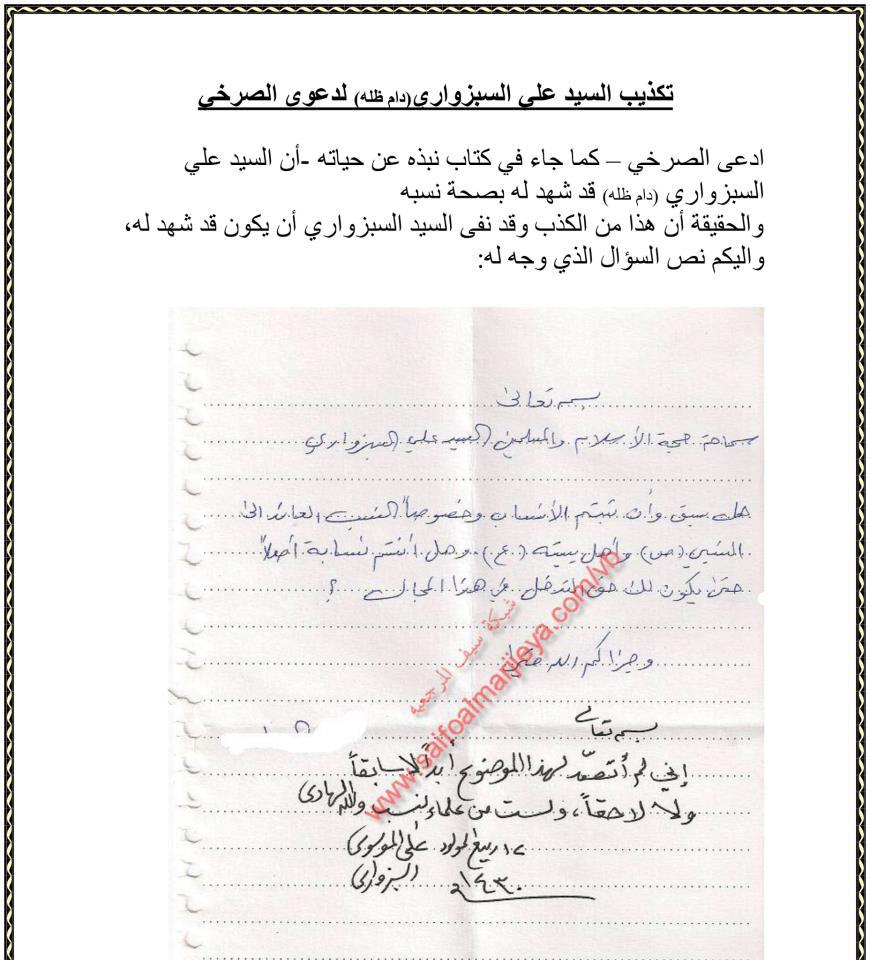 تكذيب السيد علي السبزواري(دام ظله) لدعوى الصرخي
ادعى الصرخي – كما جاء في كتاب نبذه عن حياته -أن السيد علي
السبزواري (دام ظله) قد شهد له بصحة نسبه
والحقيقة أن هذا من الكذب وقد نفى السيد السبزواري أن يكون قد شهد له،
واليكم نص السؤال الذي وجه له:
بسمه تعالى
سماحة حجة الأسلام والمسلمين السيد علي السبزواري
هل سبق وأن ثبتم الأنساب وخصوصاً النسب العائد الى
النبي (ص) وأهل بيته (ع) وهل أنتم نسابة أصلاً
حتى يكون لك حق التدخل في هذا المجال ؟
وجزاكم الله خير
شبكة سيف المرجعية
www.saifoalmarjieya.com/vb
بسمه تعالى
إني لم أتصدّ لهذا الموضوع أبداً لا سابقاً
ولا لاحقاً، ولست من علماء النسب والله الهادي
١٢ ربيع المولود علي الموسوي
١٤٣٠ السبزواري